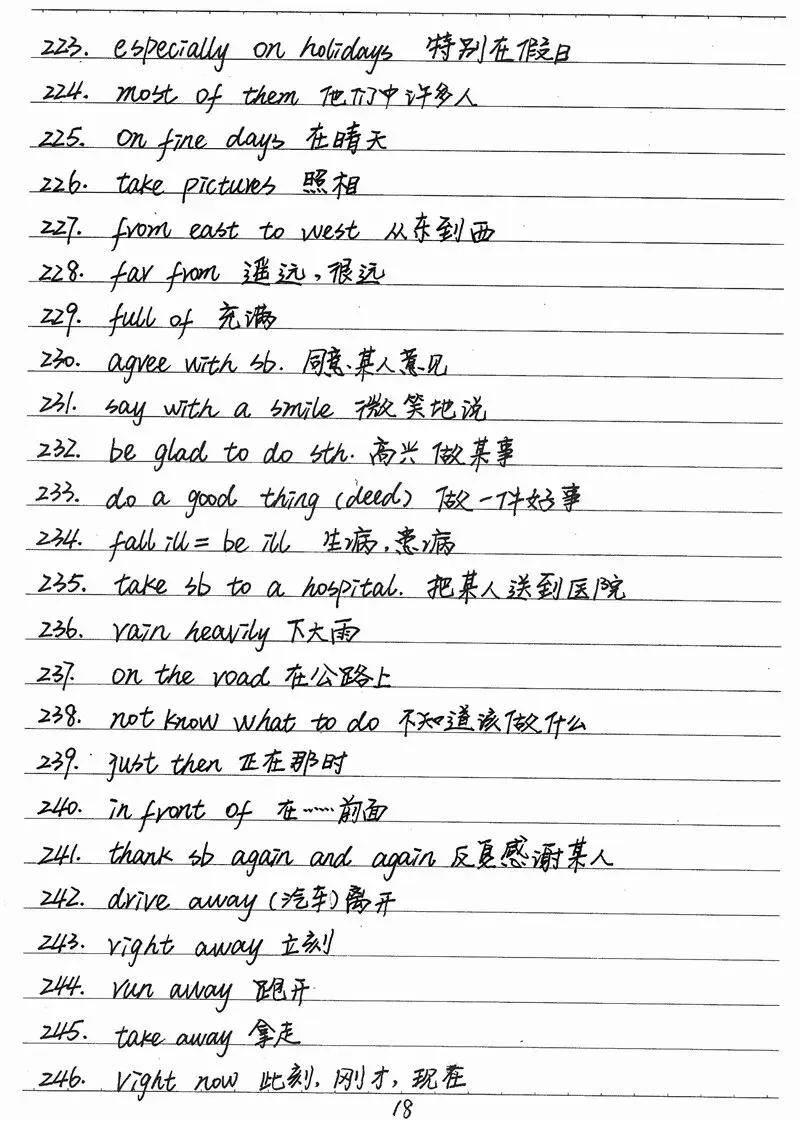 223. especially on holidays 特别在假日
224. most of them 他们中许多人
225. on fine days 在晴天
226. take pictures 照相
227. from east to west 从东到西
228. far from 遥远,很远
229. full of 充满
230. agree with sb. 同意某人意见
231. say with a smile 微笑地说
232. be glad to do sth. 高兴做某事
233. do a good thing (deed) 做一件好事
234. fall ill = be ill 生病,患病
235. take sb to a hospital. 把某人送到医院
236. rain heavily 下大雨
237. on the road 在公路上
238. not know what to do 不知道该做什么
239. just then 正在那时
240. in front of 在……前面
241. thank sb again and again 反复感谢某人
242. drive away (汽车)离开
243. right away 立刻
244. run away 跑开
245. take away 拿走
246. right now 此刻,刚才,现在
18